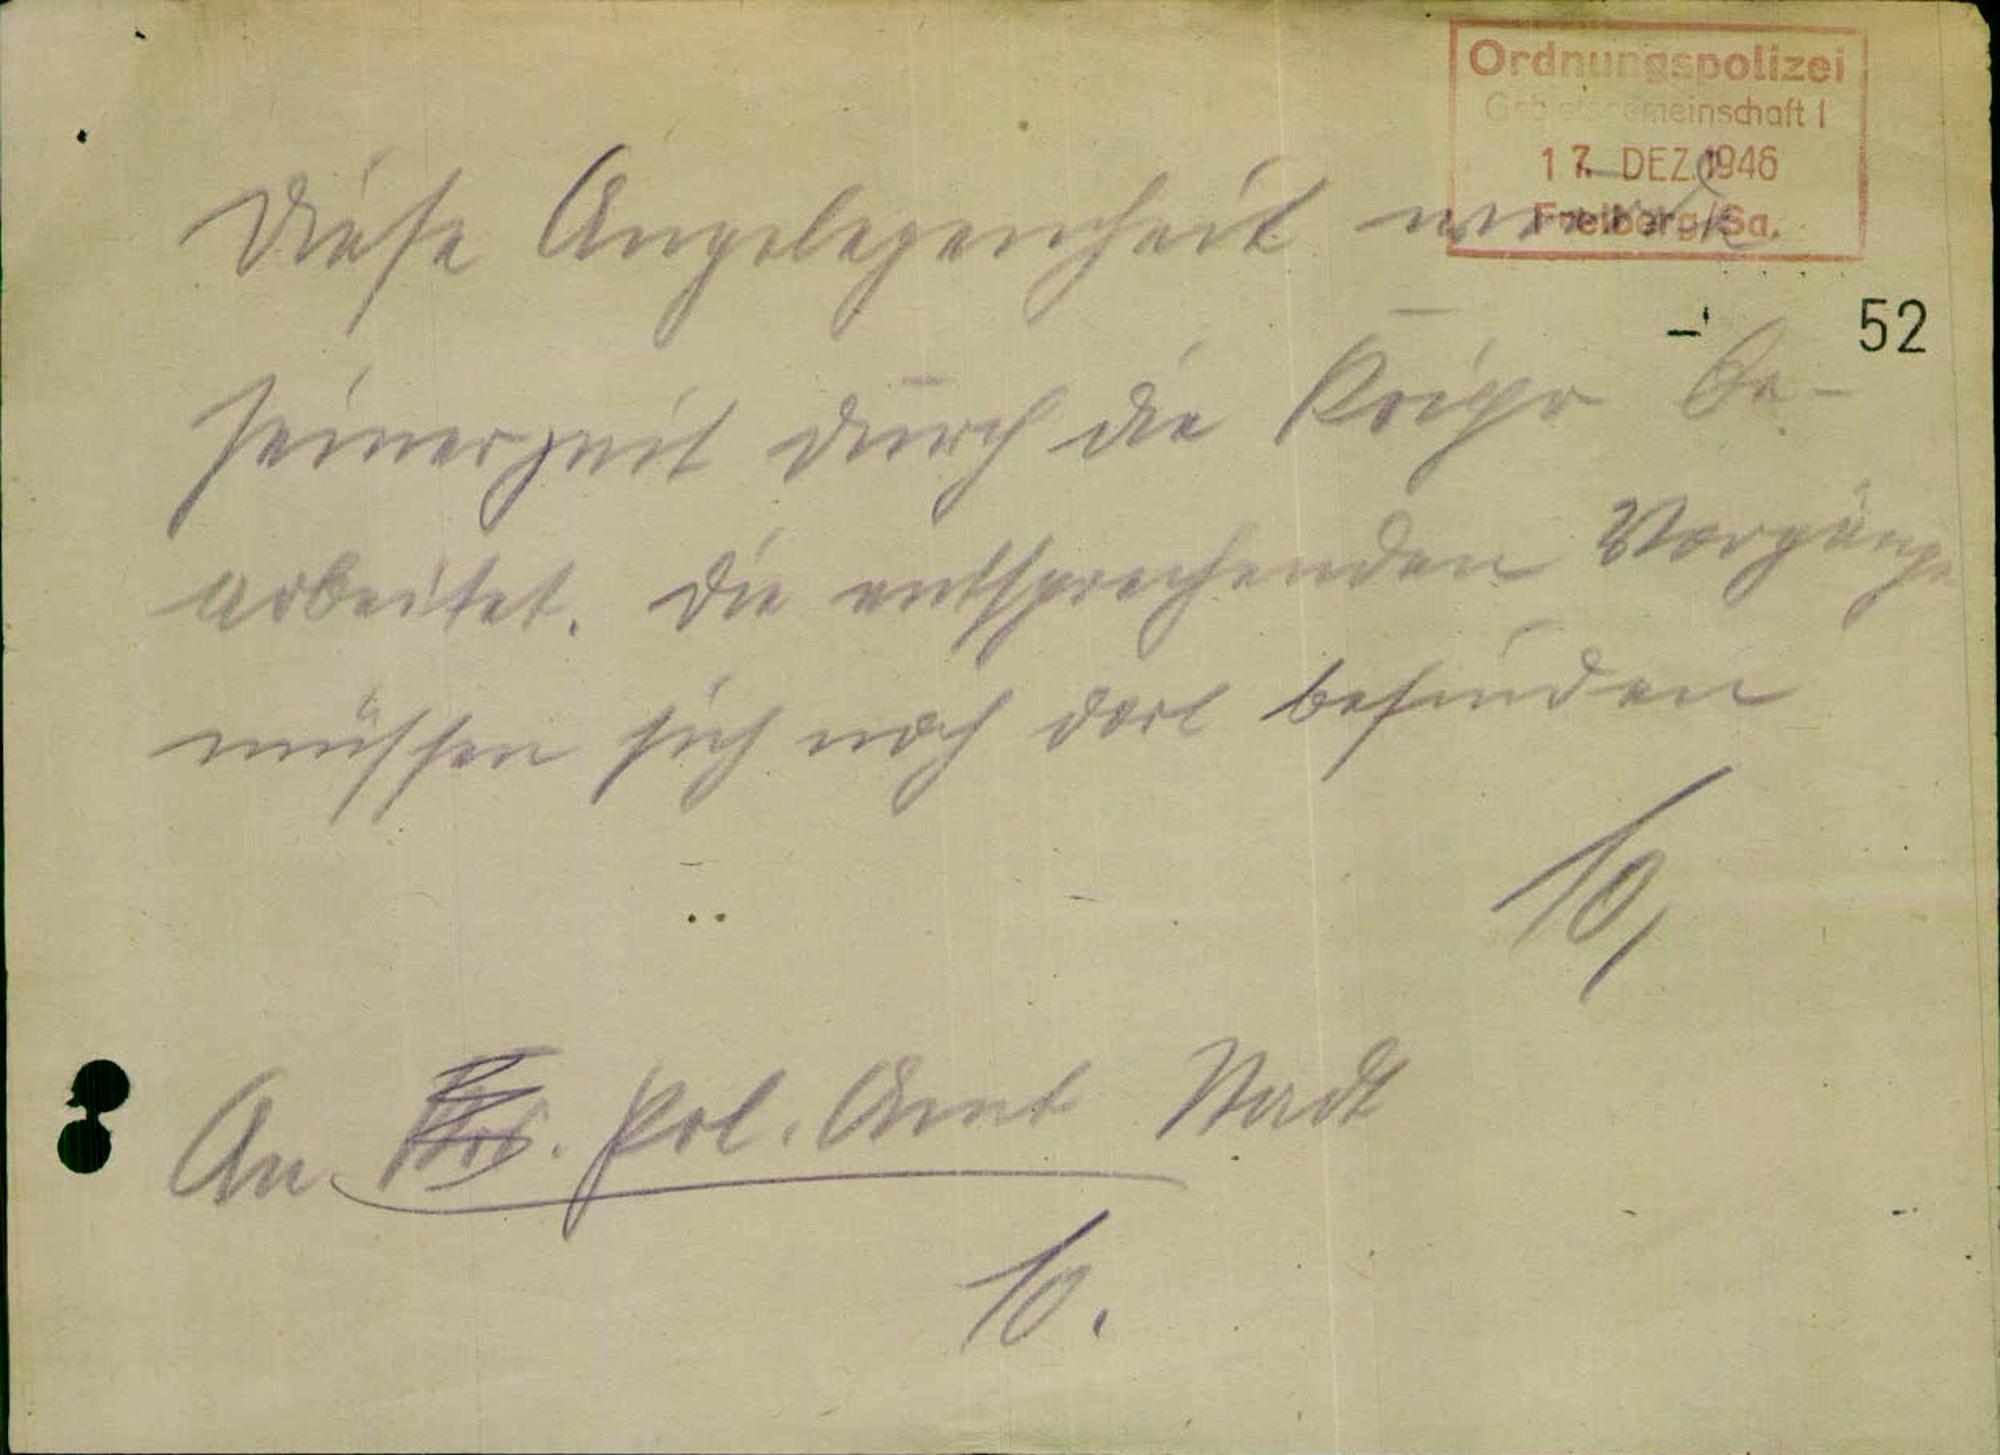 Ordnungspolizei
Gebietsgemeinschaft I
17. DEZ. 1946
Freiberg/Sa.
52
Diese Angelegenheit wurde
seinerzeit durch die Kripo be-
arbeitet. Die entsprechenden Vorgänge
müssen sich noch dort befinden
An Pol. Amt Stadt